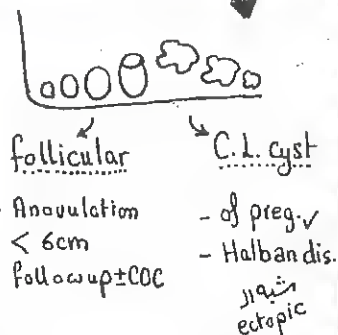 follicular
- Anovulation
< 6cm
followup±COC
C.L. cyst
- of preg.✓
- Halban dis.
شبه ال
ectopic